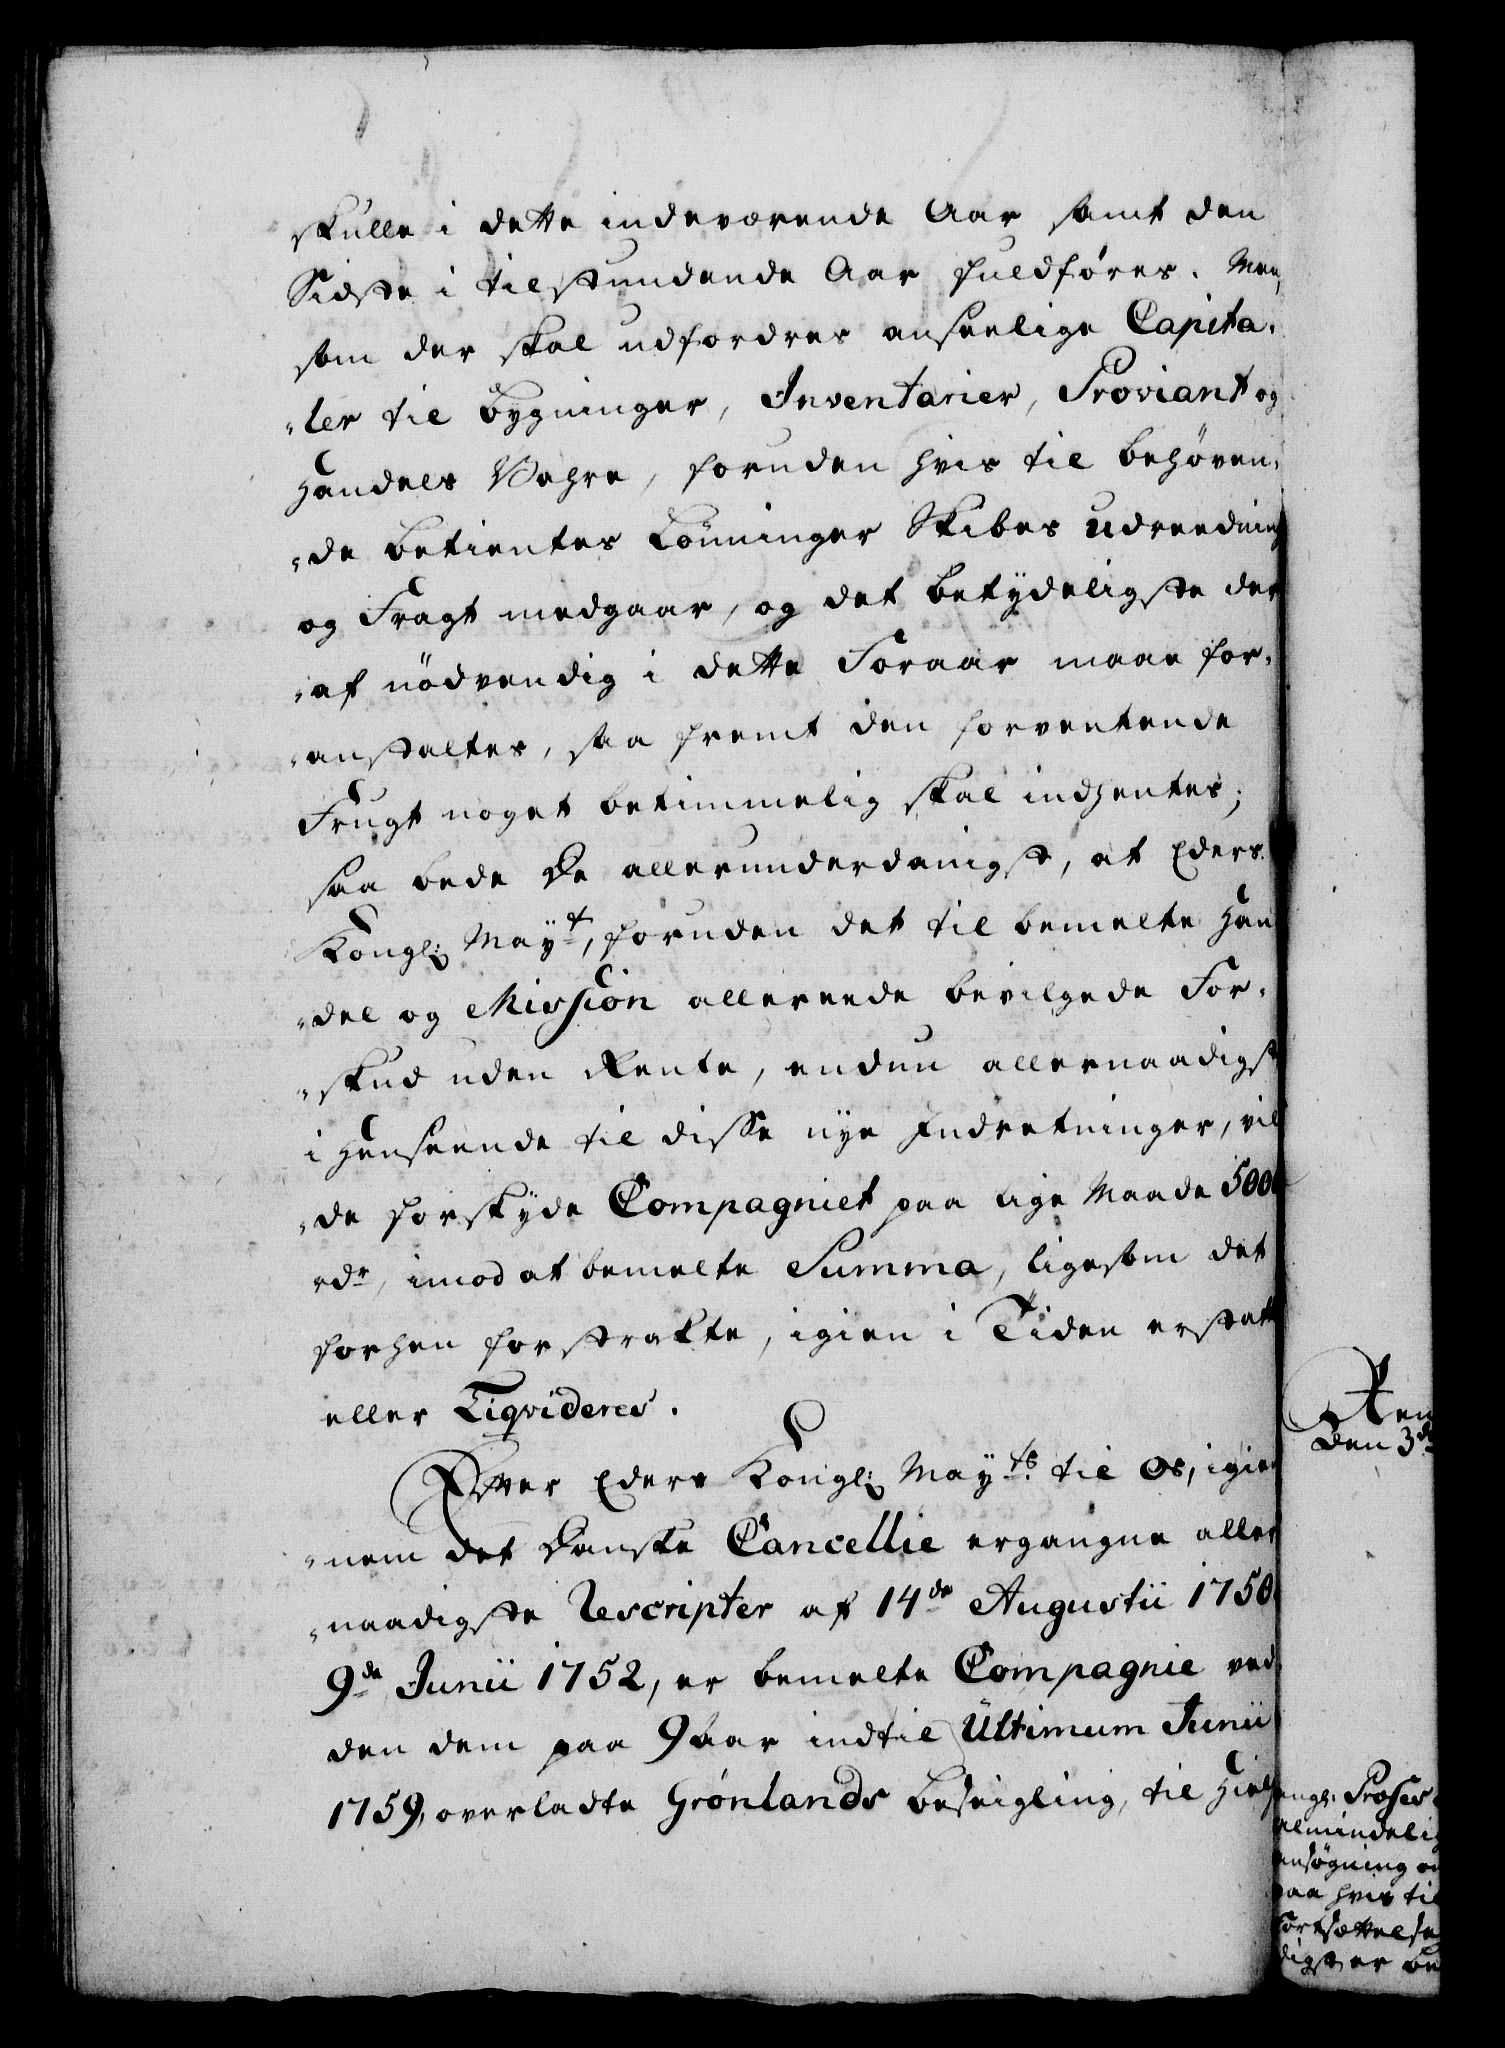 skulle i dette indeværende Aar samt den
Sidste i tilstundende Aar fuldføres. Men,
som der skal udfordres anseelige Capita-
-ler til bygninger, Inventarier, Proviant og
Handels Vahre, foruden hvis til behøven-
-de betientes Lønninger Skibes udreedning
og Fragt medgaar, og det betydeligste der
-af nödvendig i dette Foraar maae for-
-anstaltes, saa fremt den forventende
Frugt noget betimmelig skal indhentes;
saa bede De allerunderdanigst, at Eders
Kongl: Mayt, foruden det til bemelte Han
-del og Mission allereede bevilgede For-
-skud uden Rente, endnu allernaadigst
i Henseende til disse nye Indretninger, vil
-de forskyde Compagniet paa lige Maade 5000
rdr, imod at bemelte Summa, ligesom det
forhen forstrakte, igien i Tiden erstatt
eller Liqvideres.
Efter Eders Kongl: Mayts til Os, igien
-nem det Danske Cancellie ergangne aller
-naadigste Rescripter af 14de Augustii 1750
9de Junii 1752, er bemelte Compagnie ved
den dem paa 9 Aar indtil Ultimum Junii
1759, overladte Grønlands beseigling, til Hielp
Ren
den 3d
engl: Proses
almindelig
ansøgning o
paa hvis til
Fortsættelse
digst er be